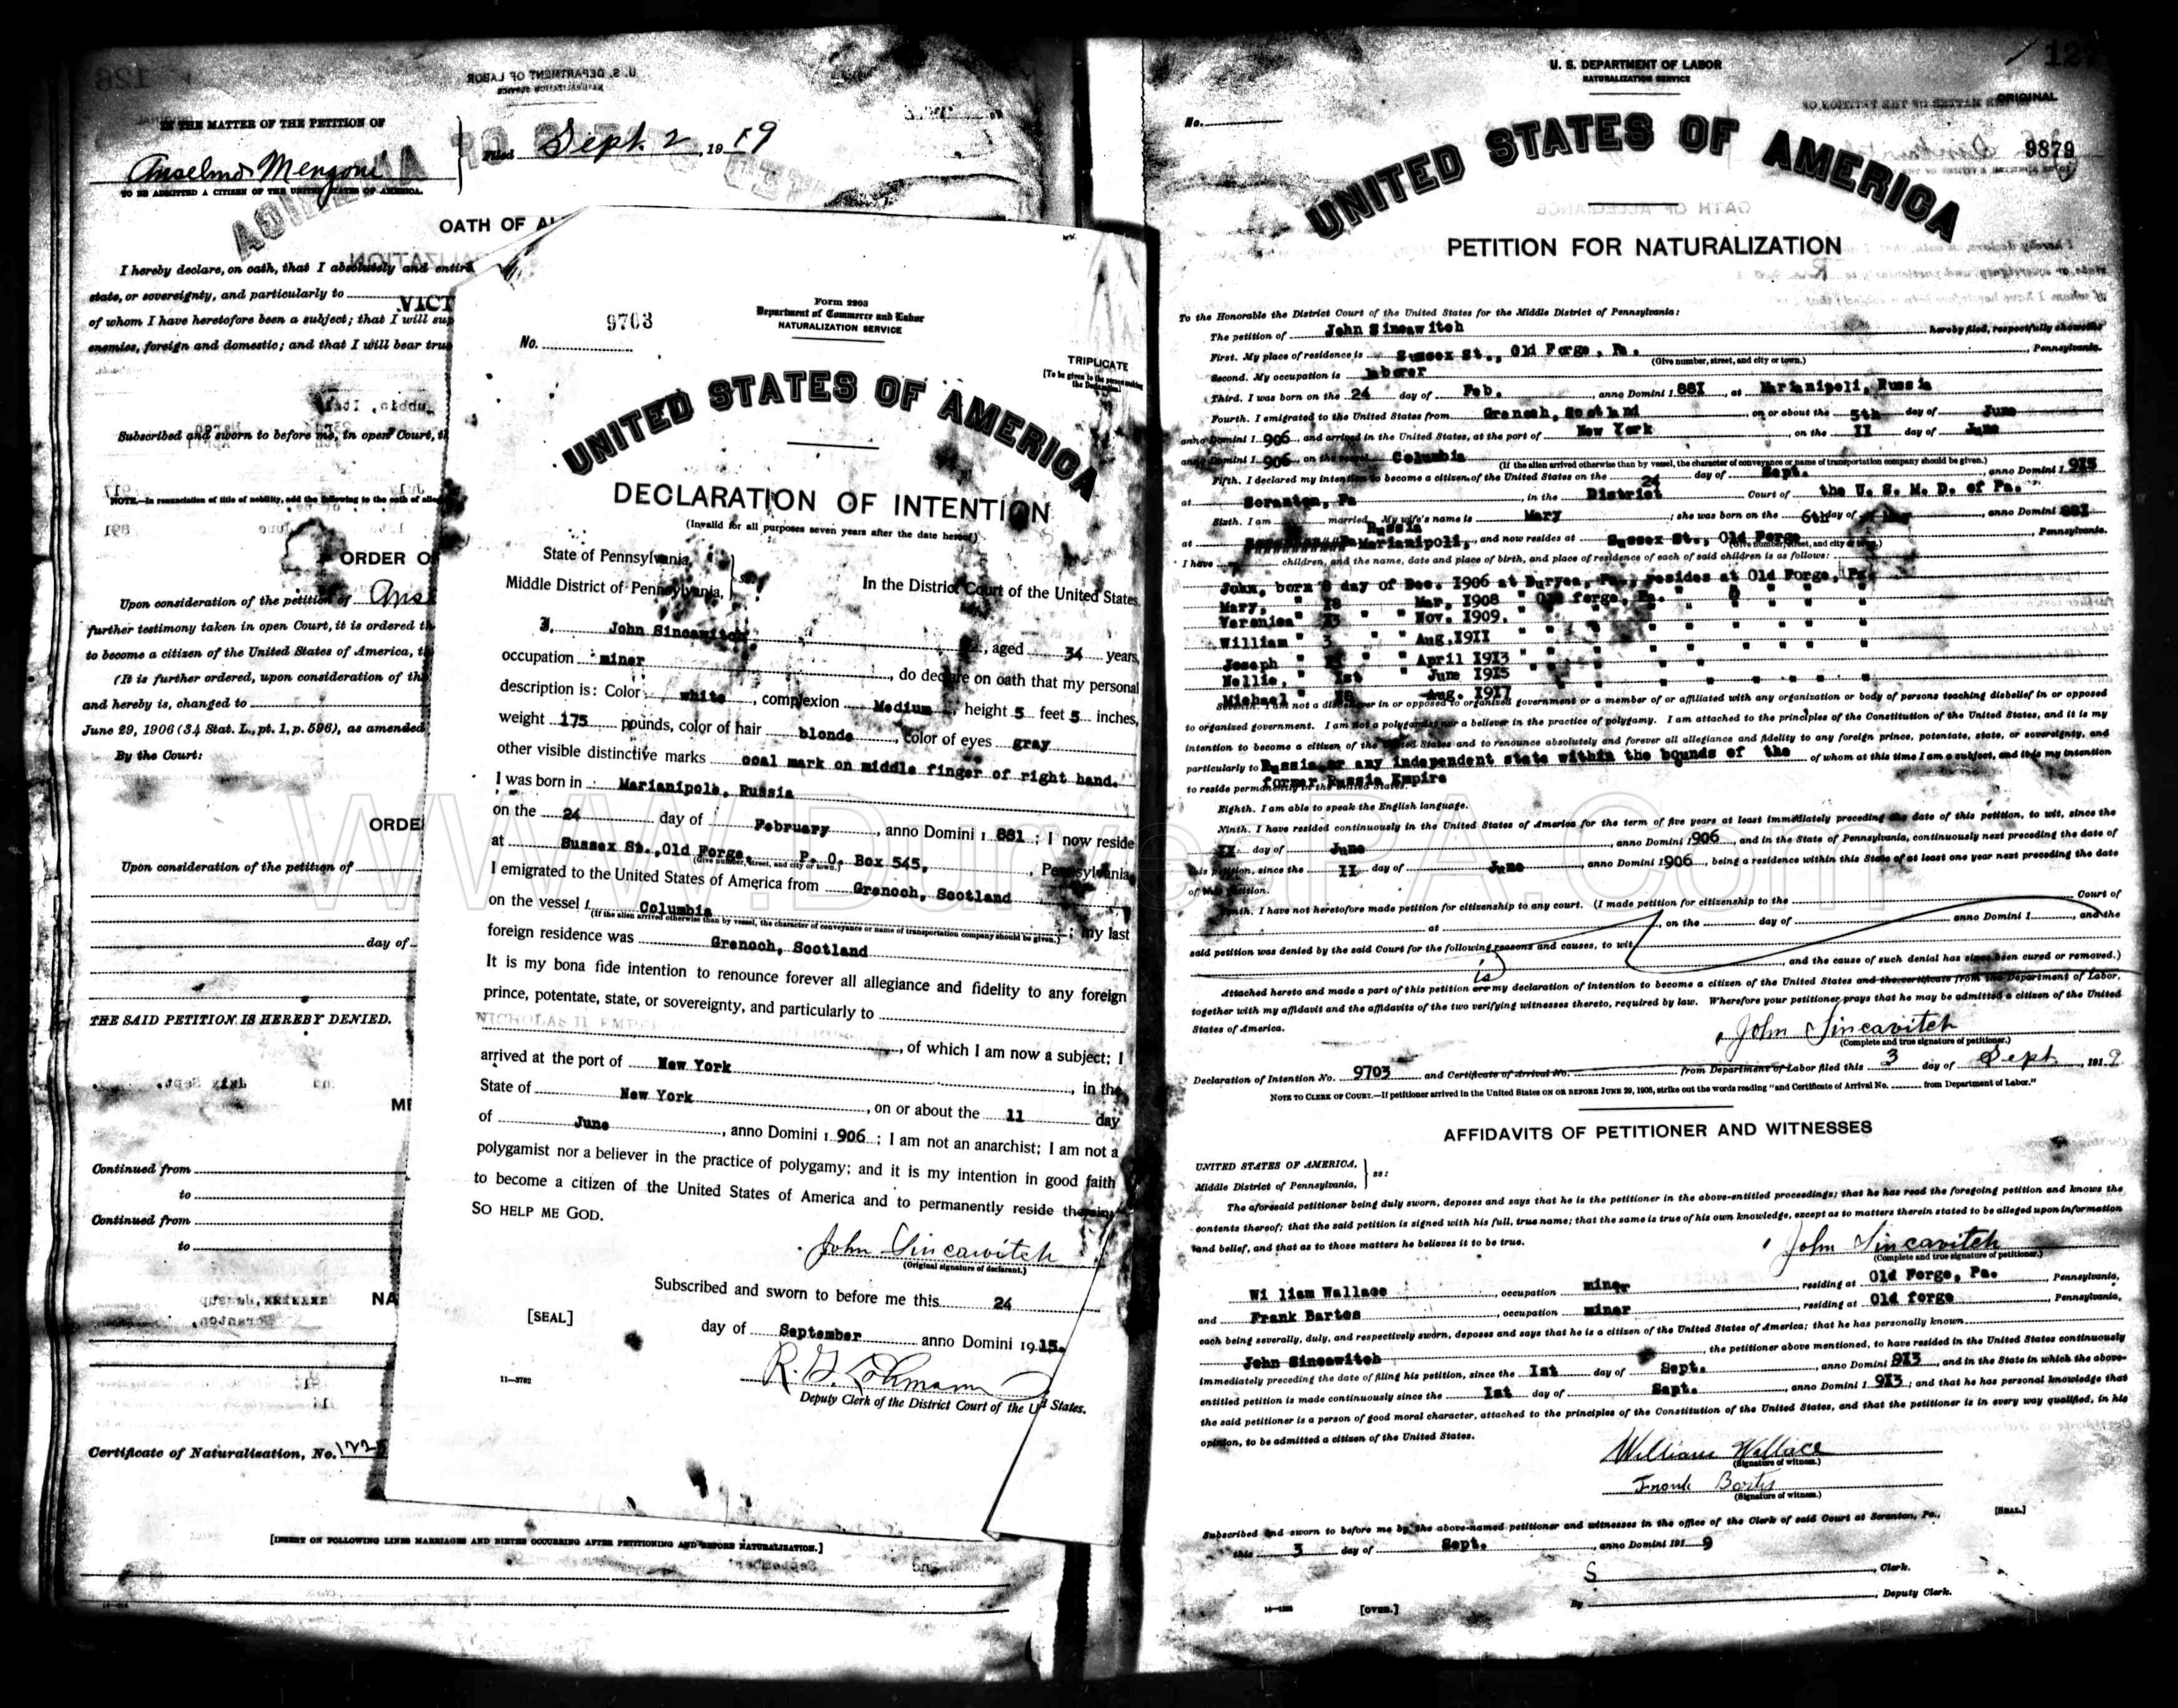 IN THE MATTER OF THE PETITION OF
Anselmo Mengoni
TO BE ADMITTED A CITIZEN OF THE UNITED STATES OF AMERICA.
Filed Sept. 2, 1919
OATH OF AL
I hereby declare, on oath, that I absolutely and entire
state, or sovereignty, and particularly to VICT
of whom I have heretofore been a subject; that I will sup
enemies, foreign and domestic; and that I will bear tru
Subscribed and sworn to before me, in open Court, t
NOTE.—In renunciation of title of nobility, add the following to the oath of alleg
ORDER O
Upon consideration of the petition of Ans
further testimony taken in open Court, it is ordered th
to become a citizen of the United States of America, t
(It is further ordered, upon consideration of th
and hereby is, changed to
June 29, 1906 (34 Stat. L., pt. 1, p. 596), as amended
By the Court:
ORDE
Upon consideration of the petition of
day of
THE SAID PETITION IS HEREBY DENIED.
ME
Continued from
to
Continued from
to
NA
Certificate of Naturalization, No.
[INSERT ON FOLLOWING LINES MARRIAGES AND BIRTHS OCCURRING AFTER PETITIONING AND BEFORE NATURALIZATION.]
Form 2203
Department of Commerce and Labor
NATURALIZATION SERVICE
No. 9703
TRIPLICATE
[To be given to the person making the Declaration]
UNITED STATES OF AMERICA
DECLARATION OF INTENTION
(Invalid for all purposes seven years after the date hereof)
State of Pennsylvania,
Middle District of Pennsylvania, } ss:
In the District Court of the United States.
I, John Sincawitch, aged 34 years,
occupation miner, do declare on oath that my personal
description is: Color white, complexion Medium, height 5 feet 5 inches,
weight 175 pounds, color of hair blonde, color of eyes gray
other visible distinctive marks coal mark on middle finger of right hand.
I was born in Marianipole, Russia
on the 24 day of February, anno Domini 1 881; I now reside
at Sussex St., Old Forge, P. O. Box 545, Pennsylvania
(Give number, street, and city or town.)
I emigrated to the United States of America from Grenoch, Scotland
on the vessel Columbia; my last
(If the alien arrived otherwise than by vessel, the character of conveyance or name of transportation company should be given.)
foreign residence was Grenoch, Scotland
It is my bona fide intention to renounce forever all allegiance and fidelity to any foreign
prince, potentate, state, or sovereignty, and particularly to
NICHOLAS II, of which I am now a subject; I
arrived at the port of New York, in the
State of New York, on or about the 11 day
of June, anno Domini 1 906; I am not an anarchist; I am not a
polygamist nor a believer in the practice of polygamy; and it is my intention in good faith
to become a citizen of the United States of America and to permanently reside therein;
SO HELP ME GOD.
John Sincawitch
(Original signature of declarant.)
Subscribed and sworn to before me this 24
[SEAL]
day of September anno Domini 1915.
11—3782
Deputy Clerk of the District Court of the U. States.
U. S. DEPARTMENT OF LABOR
NATURALIZATION SERVICE
127
ORIGINAL
No.
9879
UNITED STATES OF AMERICA
PETITION FOR NATURALIZATION
To the Honorable the District Court of the United States for the Middle District of Pennsylvania:
The petition of John Sincawitch hereby filed, respectfully showeth:
First. My place of residence is Sussex St., Old Forge, Pa., Pennsylvania.
(Give number, street, and city or town.)
Second. My occupation is laborer
Third. I was born on the 24 day of Feb., anno Domini 1 881, at Marianipoli, Russia
Fourth. I emigrated to the United States from Grenoch, Scotland on or about the 5th day of June
anno Domini 1 906, and arrived in the United States, at the port of New York, on the 11 day of June
anno Domini 1 906, on the vessel Columbia
(If the alien arrived otherwise than by vessel, the character of conveyance or name of transportation company should be given.)
Fifth. I declared my intention to become a citizen of the United States on the 24 day of Sept. anno Domini 1 915
at Scranton, Pa, in the District Court of the U. S. M. D. of Pa.
Sixth. I am married. My wife's name is Mary; she was born on the 6th day of May, anno Domini 1 881
at Marianipoli, Russia, and now resides at Sussex St., Old Forge, Pennsylvania.
I have children, and the name, date and place of birth, and place of residence of each of said children is as follows:
John, born 8 day of Dec. 1906 at Duryea, Pa., resides at Old Forge, Pa.
Mary, " 18 " Mar, 1908 " Old forge, Pa. " " " " "
Veronica " 13 " " Nov. 1909, " " " " " " "
William " 3 " " Aug. 1911 " " " " " " "
Joseph " " " April 1913 " " " " " " "
Nellie, " 1st " June 1915 " " " " " " "
Michael " Aug. 1917
Seventh. I am not a disbeliever in or opposed to organized government or a member of or affiliated with any organization or body of persons teaching disbelief in or opposed
to organized government. I am not a polygamist nor a believer in the practice of polygamy. I am attached to the principles of the Constitution of the United States, and it is my
intention to become a citizen of the United States and to renounce absolutely and forever all allegiance and fidelity to any foreign prince, potentate, state, or sovereignty, and
particularly to Russia or any independent state within the bounds of the of whom at this time I am a subject, and it is my intention
former Russia Empire
to reside permanently in the United States.
Eighth. I am able to speak the English language.
Ninth. I have resided continuously in the United States of America for the term of five years at least immediately preceding the date of this petition, to wit, since the
11 day of June, anno Domini 1906, and in the State of Pennsylvania, continuously next preceding the date of
this petition, since the 11 day of June, anno Domini 1906, being a residence within this State of at least one year next preceding the date
of this petition.
Tenth. I have not heretofore made petition for citizenship to any court. (I made petition for citizenship to the Court of
at, on the day of anno Domini 1, and the
said petition was denied by the said Court for the following reasons and causes, to wit,
, and the cause of such denial has since been cured or removed.)
is
Attached hereto and made a part of this petition are my declaration of intention to become a citizen of the United States and the certificate from the Department of Labor,
together with my affidavit and the affidavits of the two verifying witnesses thereto, required by law. Wherefore your petitioner prays that he may be admitted a citizen of the United
States of America.
John Sincavitch
(Complete and true signature of petitioner.)
Declaration of Intention No. 9703 and Certificate of Arrival No. from Department of Labor filed this 3 day of Sept, 1919
NOTE TO CLERK OF COURT.—If petitioner arrived in the United States ON OR BEFORE JUNE 29, 1906, strike out the words reading "and Certificate of Arrival No. from Department of Labor."
AFFIDAVITS OF PETITIONER AND WITNESSES
UNITED STATES OF AMERICA,
Middle District of Pennsylvania, } ss:
The aforesaid petitioner being duly sworn, deposes and says that he is the petitioner in the above-entitled proceedings; that he has read the foregoing petition and knows the
contents thereof; that the said petition is signed with his full, true name; that the same is true of his own knowledge, except as to matters therein stated to be alleged upon information
and belief, and that as to those matters he believes it to be true.
John Sincavitch
(Complete and true signature of petitioner.)
Wi liam Wallace, occupation miner, residing at Old Forge, Pa., Pennsylvania,
and Frank Bartos, occupation miner, residing at Old forge, Pennsylvania,
each being severally, duly, and respectively sworn, deposes and says that he is a citizen of the United States of America; that he has personally known
John Sincawitch, the petitioner above mentioned, to have resided in the United States continuously
immediately preceding the date of filing his petition, since the 1st day of Sept., anno Domini 913, and in the State in which the above-
entitled petition is made continuously since the 1st day of Sept., anno Domini 1 913; and that he has personal knowledge that
the said petitioner is a person of good moral character, attached to the principles of the Constitution of the United States, and that the petitioner is in every way qualified, in his
opinion, to be admitted a citizen of the United States.
William Wallace
(Signature of witness.)
Frank Bartos
(Signature of witness.)
Subscribed and sworn to before me by the above-named petitioner and witnesses in the office of the Clerk of said Court at Scranton, Pa.,
[SEAL.]
this 3 day of Sept., anno Domini 1919
S, Clerk.
By, Deputy Clerk.
[OVER.]
WWW.DuryeaPA.Com